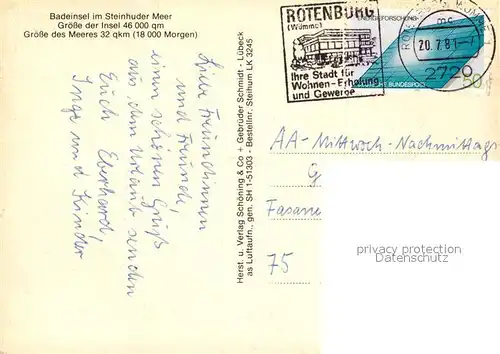 Badeinsel im Steinhuder Meer
Größe der Insel 46 000 qm
Größe des Meeres 32 qkm (18 000 Morgen)
Liebe Freundinnen
und Freunde,
einen schönen Gruß
aus dem Urlaub senden
Euch Eberhard,
Inge und Kinder
Herst. u. Verlag Schöning & Co + Gebrüder Schmidt - Lübeck
as Luftaufn., gen. SH 1-51303 - Bestellnr. Steihum LK 3245
ROTENBURG
(Wümme)
Ihre Stadt für
Wohnen-Erholung
und Gewerbe
ENERGIEFORSCHUNG
20.7.81
2720
50
BUNDESPOST
AA-Mittwoch-Nachmittags
G
Fasane
75
privacy protection
oldthing.com